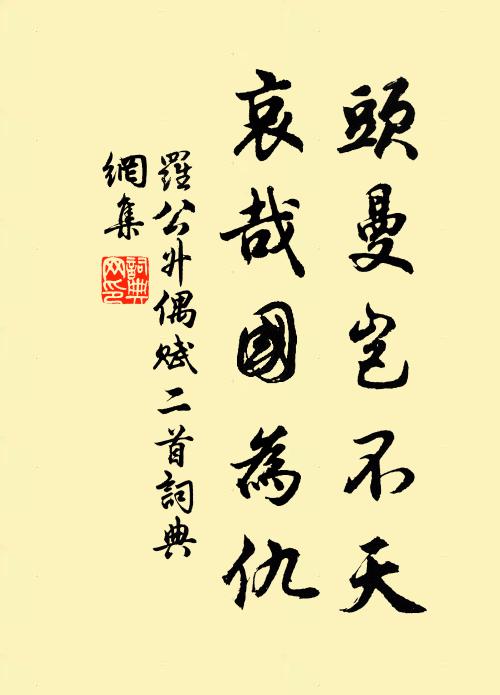 頭曼豈不天
哀哉國為仇
羅公升偶賦二首詞典
網集
詞典
網印